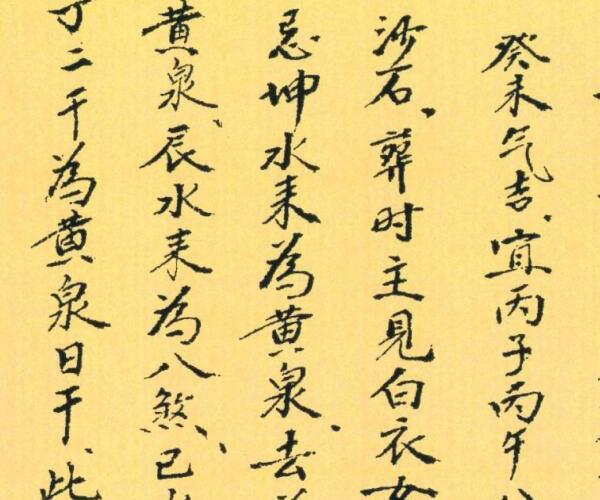 癸未气吉、宜丙子丙午
沙石、葬时主見白衣女
忌坤水耒為黄泉、去
黄泉、辰水耒為八煞、已
二干為黄泉日干、此